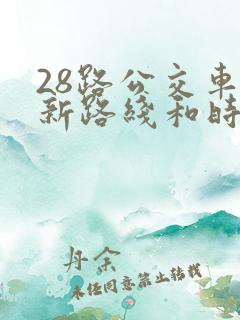 28路公交车
新路线和时
丹余
未经同意禁止转载